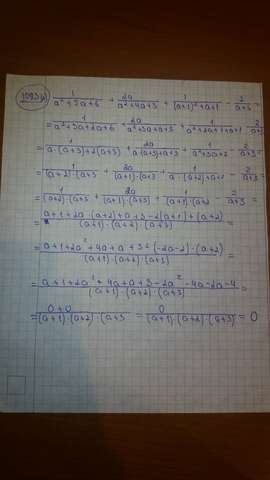 1093(б) 1/(a²+5a+6) + 2a/(a²+4a+3) + 1/((a+1)²+a+1) - 2/(a+3) =
= 1/(a²+3a+2a+6) + 2a/(a²+3a+a+3) + 1/(a²+2a+1+a+1) - 2/(a+3) =
= 1/(a·(a+3)+2(a+3)) + 2a/(a·(a+3)+a+3) + 1/(a²+3a+2) - 2/(a+3) =
= 1/((a+2)·(a+3) + 2a/((a+1)·(a+3) + 1/(a·(a+2)+a+2) - 2/(a+3) =
= 1/((a+2)·(a+3) + 2a/((a+1)·(a+3) + 1/((a+1)·(a+2) - 2/(a+3) =
= (a+1+2a·(a+2)+a+3-2(a+1)·(a+2))/((a+1)·(a+2)·(a+3)) =
= (a+1+2a²+4a+a+3+(-2a-2)·(a+2))/((a+1)·(a+2)·(a+3)) =
= (a+1+2a²+4a+a+3-2a²-4a-2a-4)/((a+1)·(a+2)·(a+3)) =
= (0+0)/((a+1)·(a+2)·(a+3) = 0/((a+1)·(a+2)·(a+3)) = 0